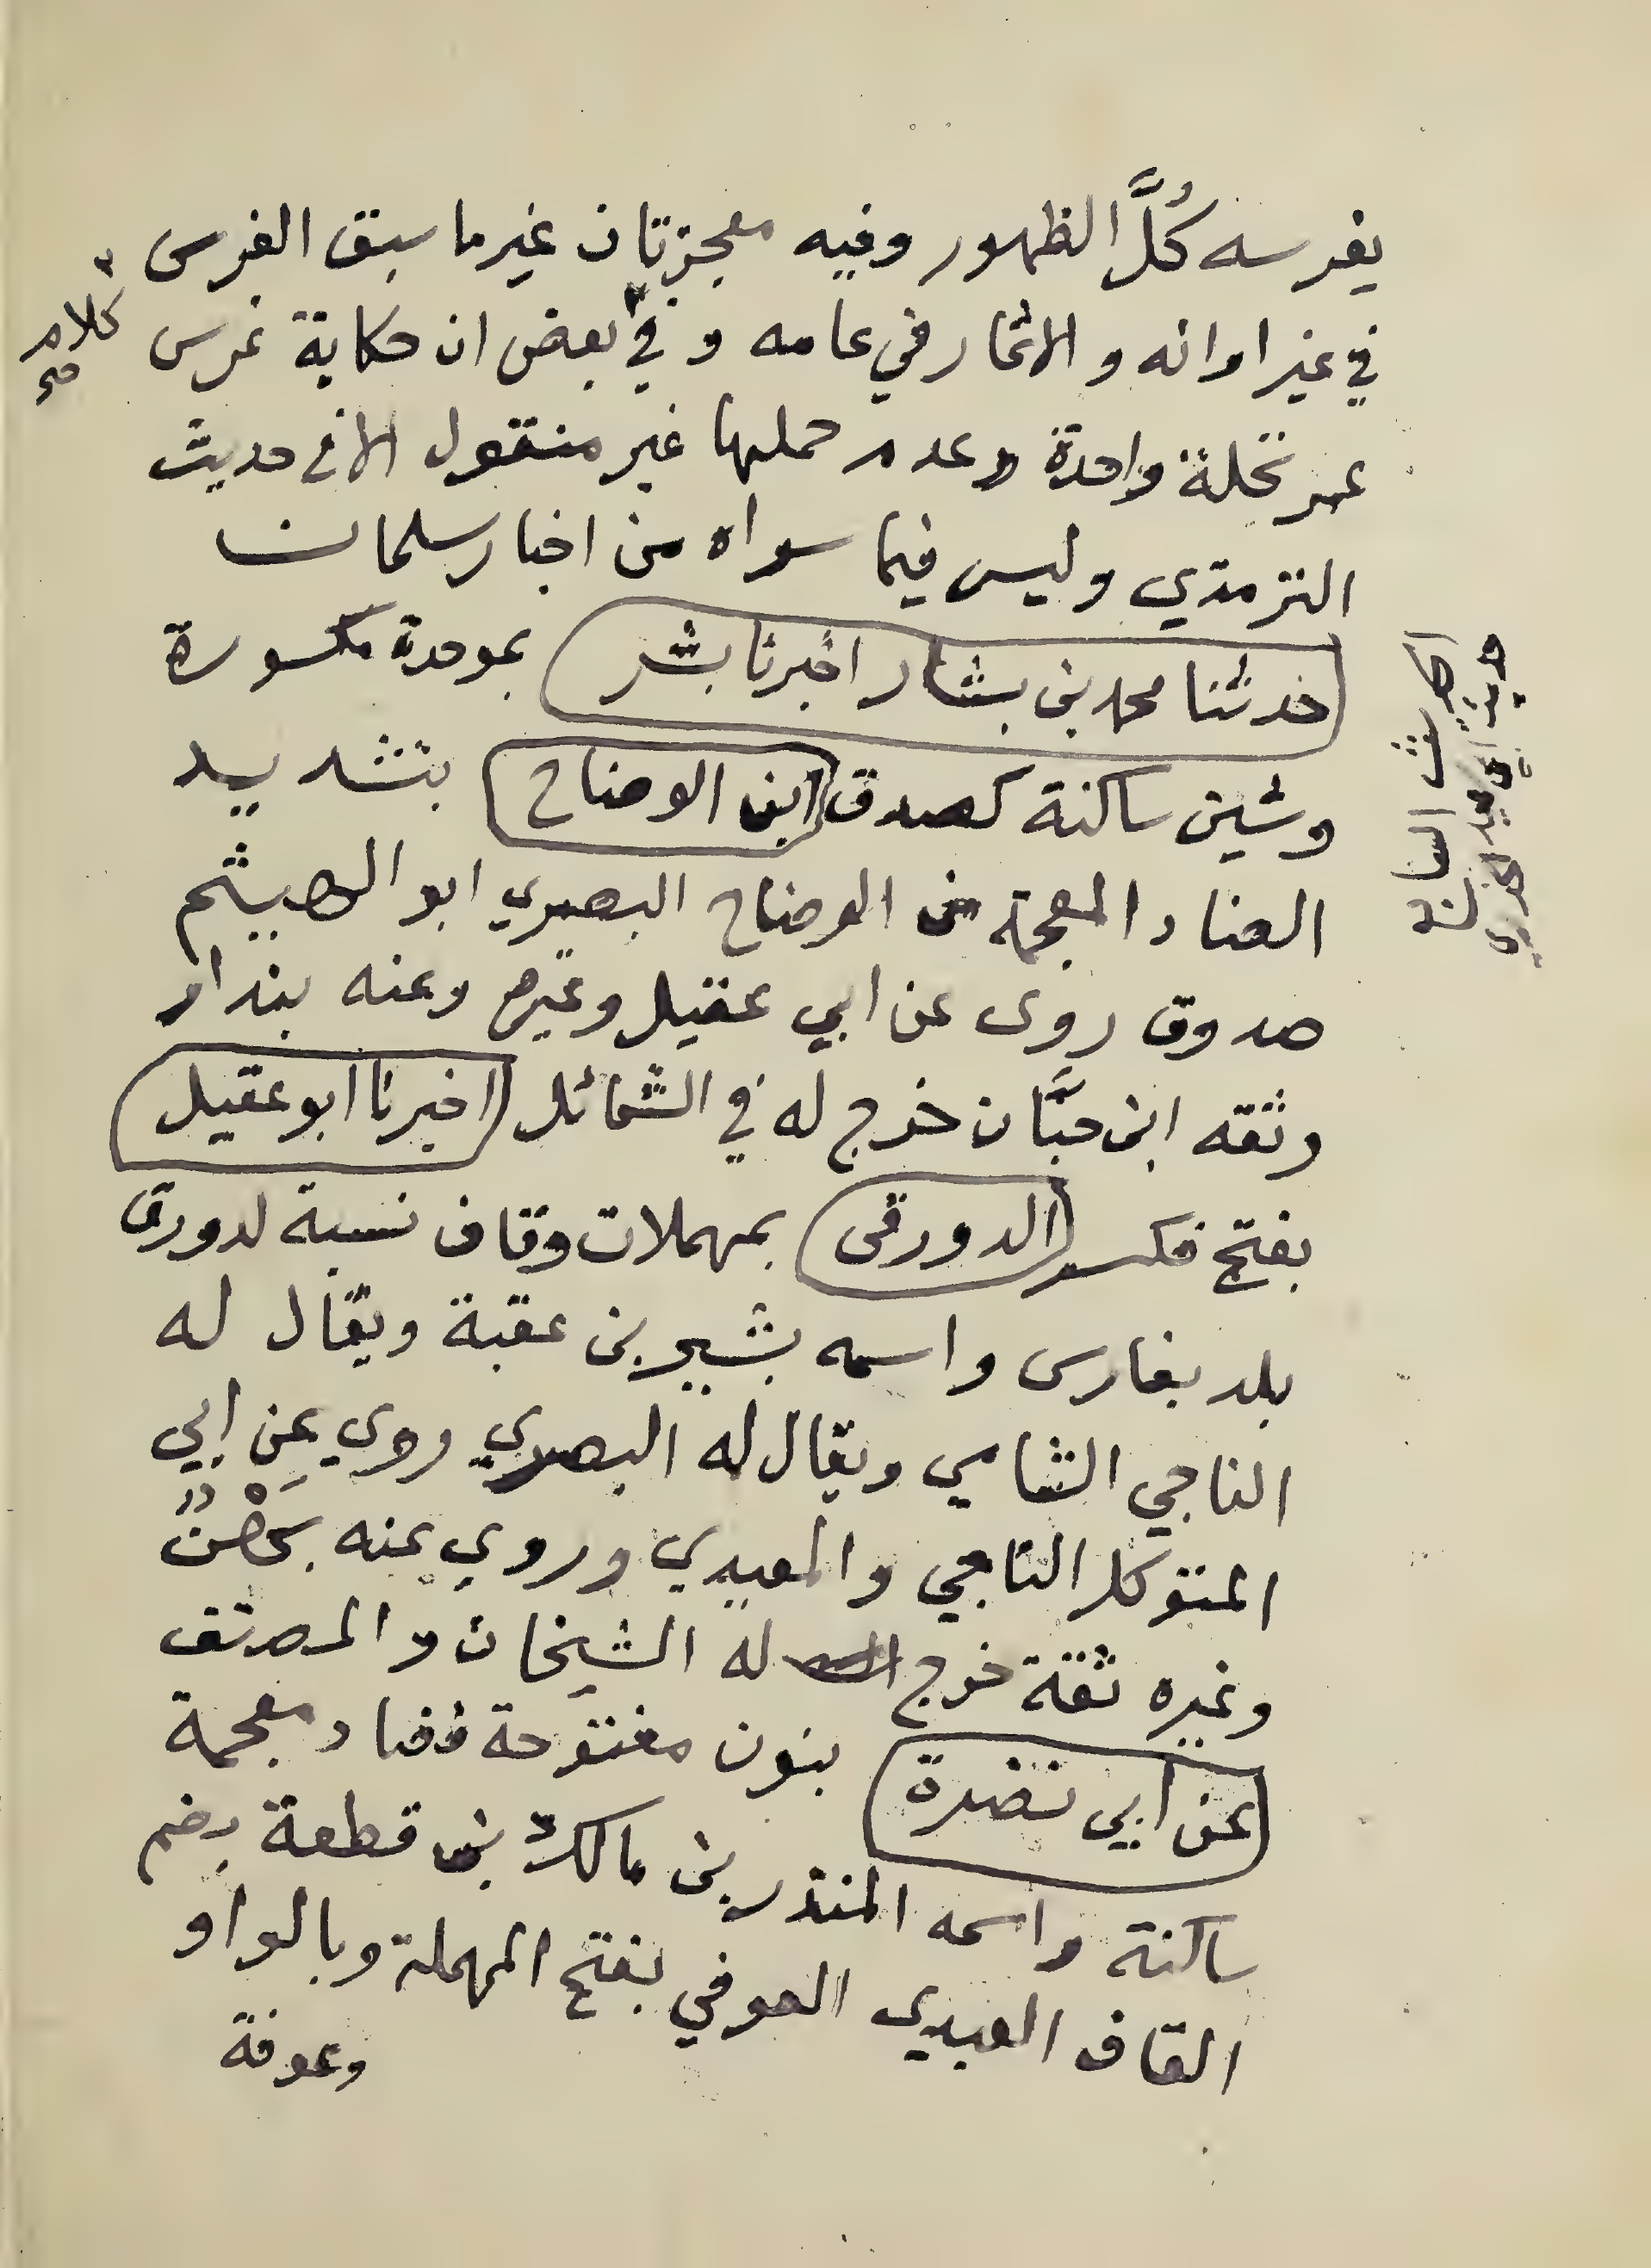 يغرسه كُلَّ الظهور وفيه معجزتان غير ما سبق الغرس
في غير اوانه والاثمار في عامه وفي بعض ان حكاية غرس
كلام
صح
عمر نخلة واحدة وعدم حملها غير منقول الا في حديث
الترمذي وليس فيما سواه من اخبار سلمان
حدثنا محمد بن بشار اخبرنا بشر بموحدة مكسورة
وشين ساكنة كصدق ابن الوضاح بتشديد
الضاد المعجمة من الوضاح البصري ابو الهيثم
صدوق روى عن ابي عقيل وغيره وعنه بندار
وثقه ابن حبَّان خرج له في الشمائل اخبرنا ابو عقيل
بفتح فكسر الدورقى بمهملات وقاف نسبة لدورق
بلد بفارس واسمه بشير بن عقبة ويقال له
الناجي الشامي ويقال له البصري روي عن ابي
المتوكل الناجي والعبدي وروي عنه بَهْزٌ
وغيره ثقة خرج له الشيخان والمصنف
عن ابي نضرة بنون مفتوحة فضاد معجمة
ساكنة واسمه المنذر بن مالك بن قطعة بضم
القاف العبدي العوفي بفتح المهملة وبالواو
وعوفة
حديث ابي سعيد الخدري
الحديث